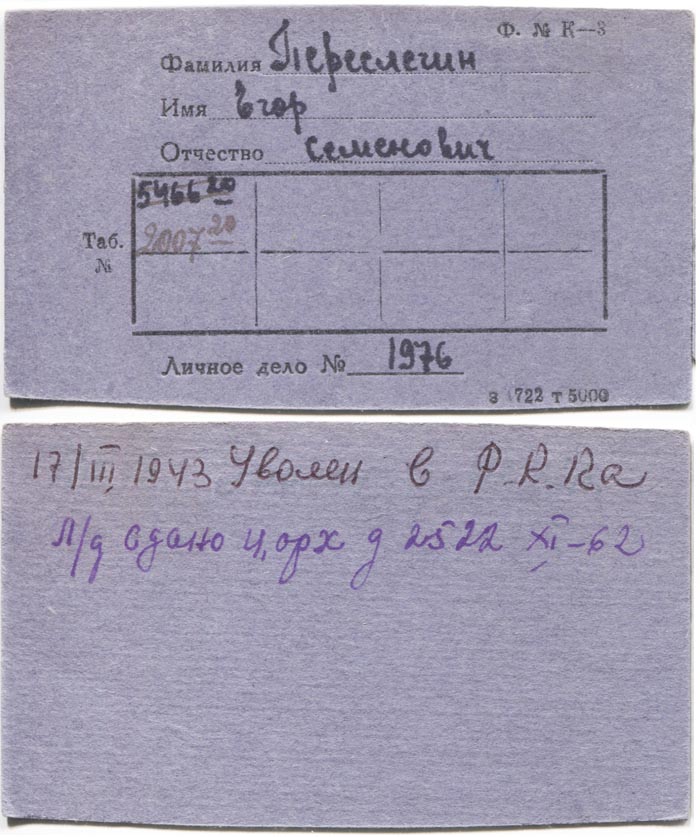 Ф. № К—3
Фамилия Переслегин
Имя Егор
Отчество Семенович
5466 20
Таб. № 2007 20
Личное дело № 1976
з 1722 т 5000
17/III 1943 Уволен в Р.К.Ка
л/д сдано ц,арх д 2522 XI-62